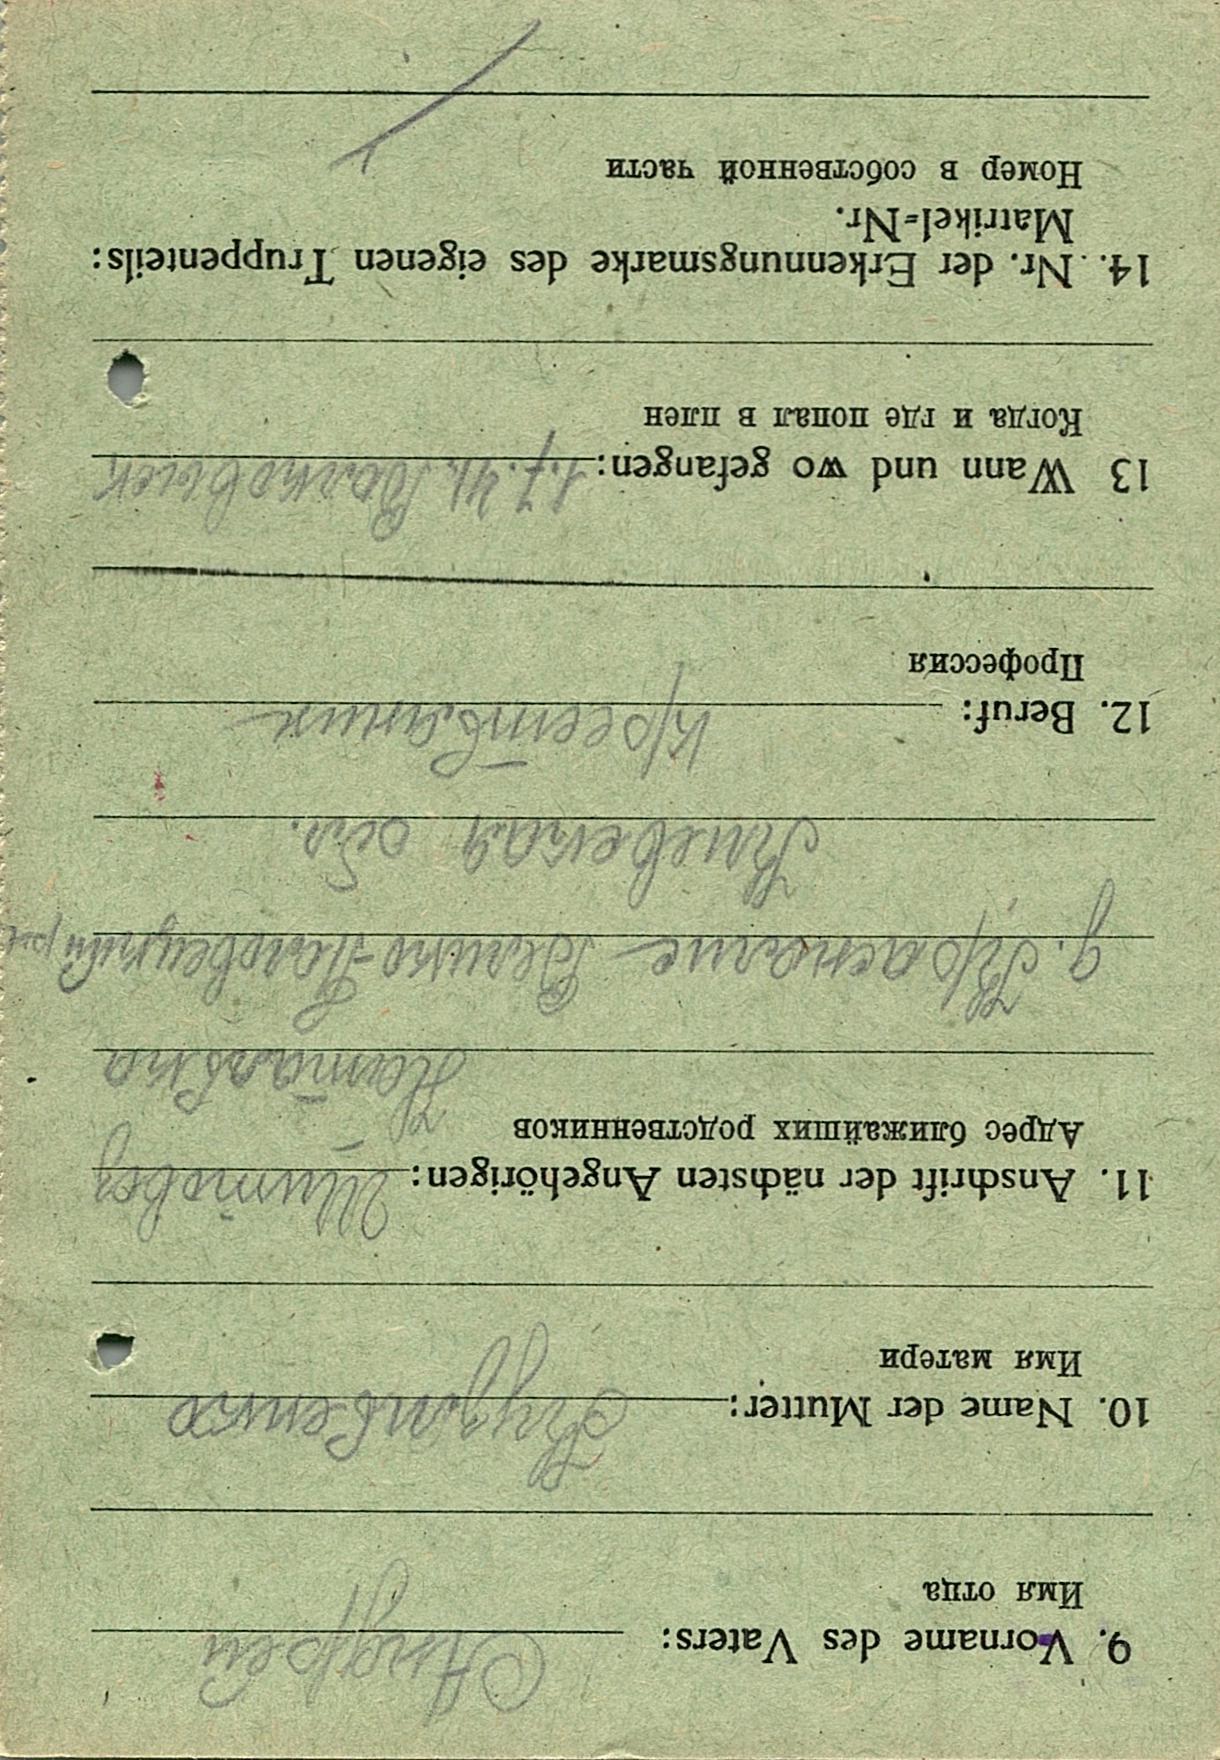 9. Vorname des Vaters: Андрей
Имя отца
10. Name der Mutter:
Имя матери
11. Anschrift der nächsten Angehörigen:
Адрес ближайших родственников
Наталка
д. Красное
Киевская обл.
12. Beruf: Крестьянин
Профессия
13 Wann und wo gefangen: 1.7.41. Волковыск
Когда и где попал в плен
14. Nr. der Erkennungsmarke des eigenen Truppenteils:
Matrikel=Nr.
Номер в собственной части